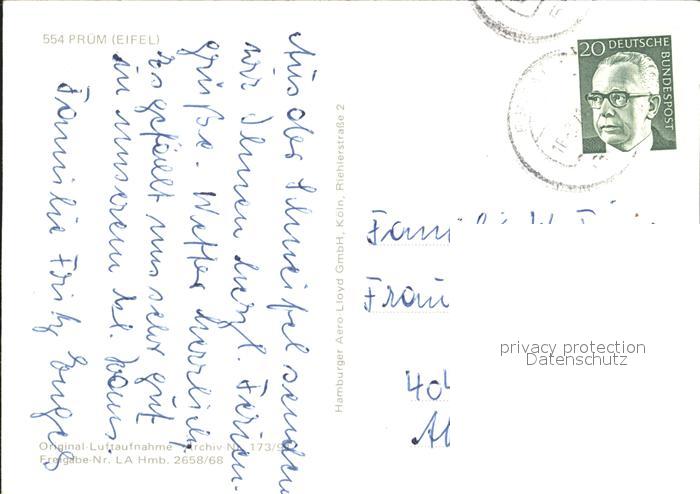 554 PRÜM (EIFEL)
Aus der Schneifel senden
wir Ihnen herzl. Ferien-
grüße. Wetter herrlich,
es gefällt uns sehr gut
in unserem kl. Haus.
Familie Fritz Engels
Original-Luftaufnahme Archiv Nr. 173/
Freigabe-Nr. LA Hmb. 2658/68
Hamburger Aero-Lloyd GmbH, Köln, Riehlerstraße 2
20 DEUTSCHE
BUNDESPOST
Fam
Frau
privacy protection
Datenschutz